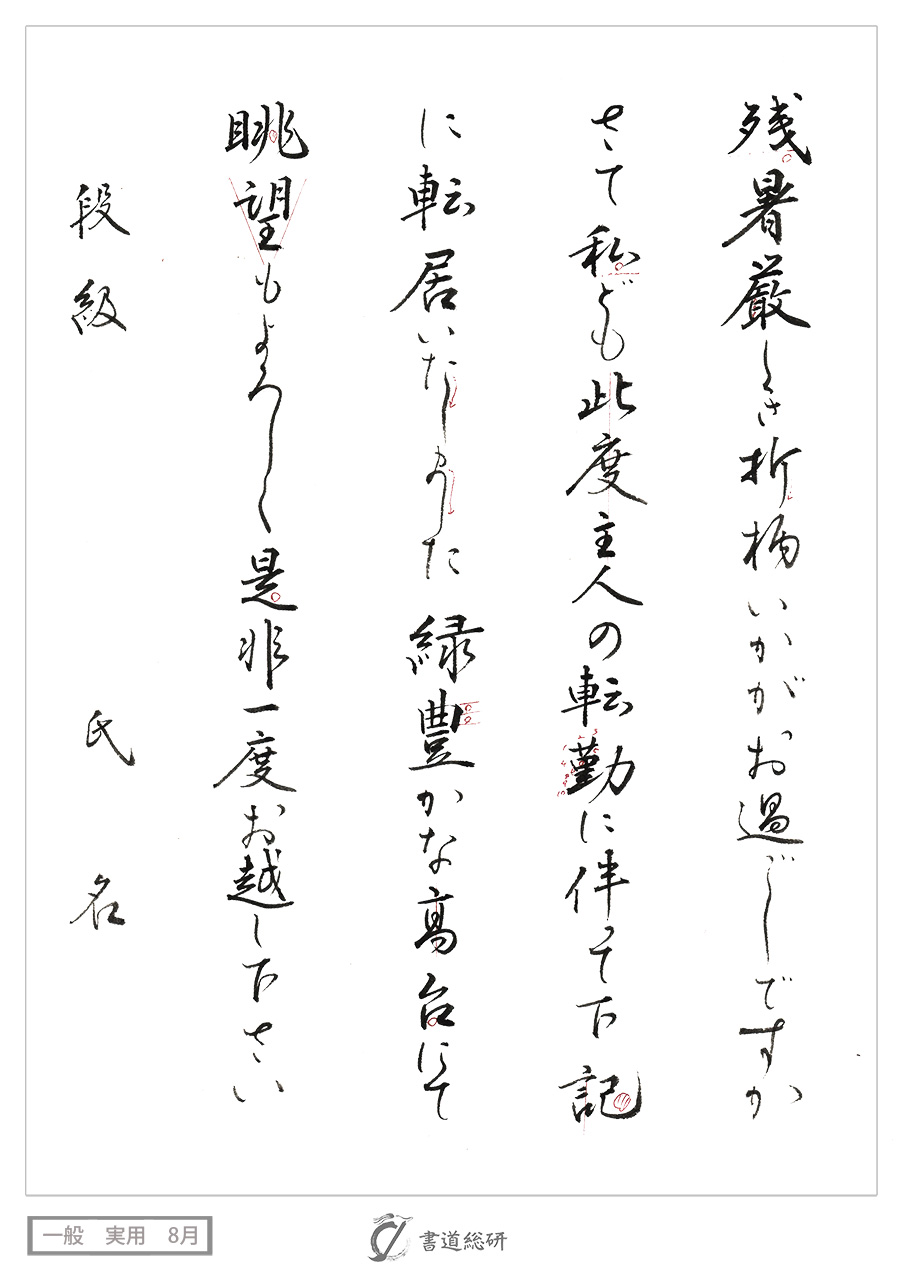 残暑厳しき折柄いかがお過ごしですか
さて私ども此度主人の転勤に伴って下記
に転居いたしました緑豊かな高台にて
眺望もよろしく是非一度お越し下さい
段級 氏名
一般 実用 8月
書道総研